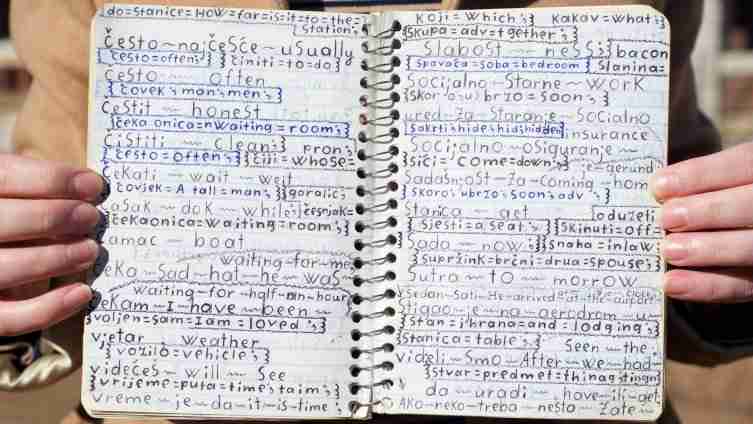 do=stanice=HOW=far=is=it=to=the=
station;
često~najčešće~usually
često=often; činiti=to=do;
često ~ often
čovek; man; men;
čestit ~ honest
čeka onica=waiting=room;
čistiti ~ clean; pron;
često=often; čiji=whose=
čekati ~ wait ~ weit
čovjek= A tall=man; goralic;
časak ~ dok ~ while; češnjak=
čekaonica=waiting=room;
čamac ~ boat
waiting~for~me
čeka ~ sad~hat~he ~ was~
waiting~for~half~an~hour
čekam~I~have~been~
voljen=sam=I=am=loved;
vjetar ~ weather
vozilo=vehicle;
videćeš ~ will ~ see
vrijeme=puta=time; taim;
vreme ~ je~da~it~is~time;
koji=which; kakav=what;
skupa=adv=tgether;
slabost ~ ness; bacon
spavaća=soba=bedroom slanina=
socijalno ~ starne ~ work
skor o; u brzo=soon;
ured za staranje ~ socialno
sakriti; hide; hid; hidden; insurance
socijalno ~osiguranje ~
sići= come=down; je~gerund
sadašnost~za~coming~hom
skoro; ubrzo=soon; adv
stanica ~ get oduzeti
sjesti=a, seat; skinuti=off=
sada ~ now; snaha=inlaw;
supružnik=brčni=drua=spouse;
sutra ~ to ~ morrow
stigao~je~na~aerodrom~u
stan=; hrana=and=lodging;
stanica=table; seen~the
videli~smo~After~we~had
stvar=predmet=thing
da ~ uradi ~ have~ili~get
Ako~neko~treba~nešto~